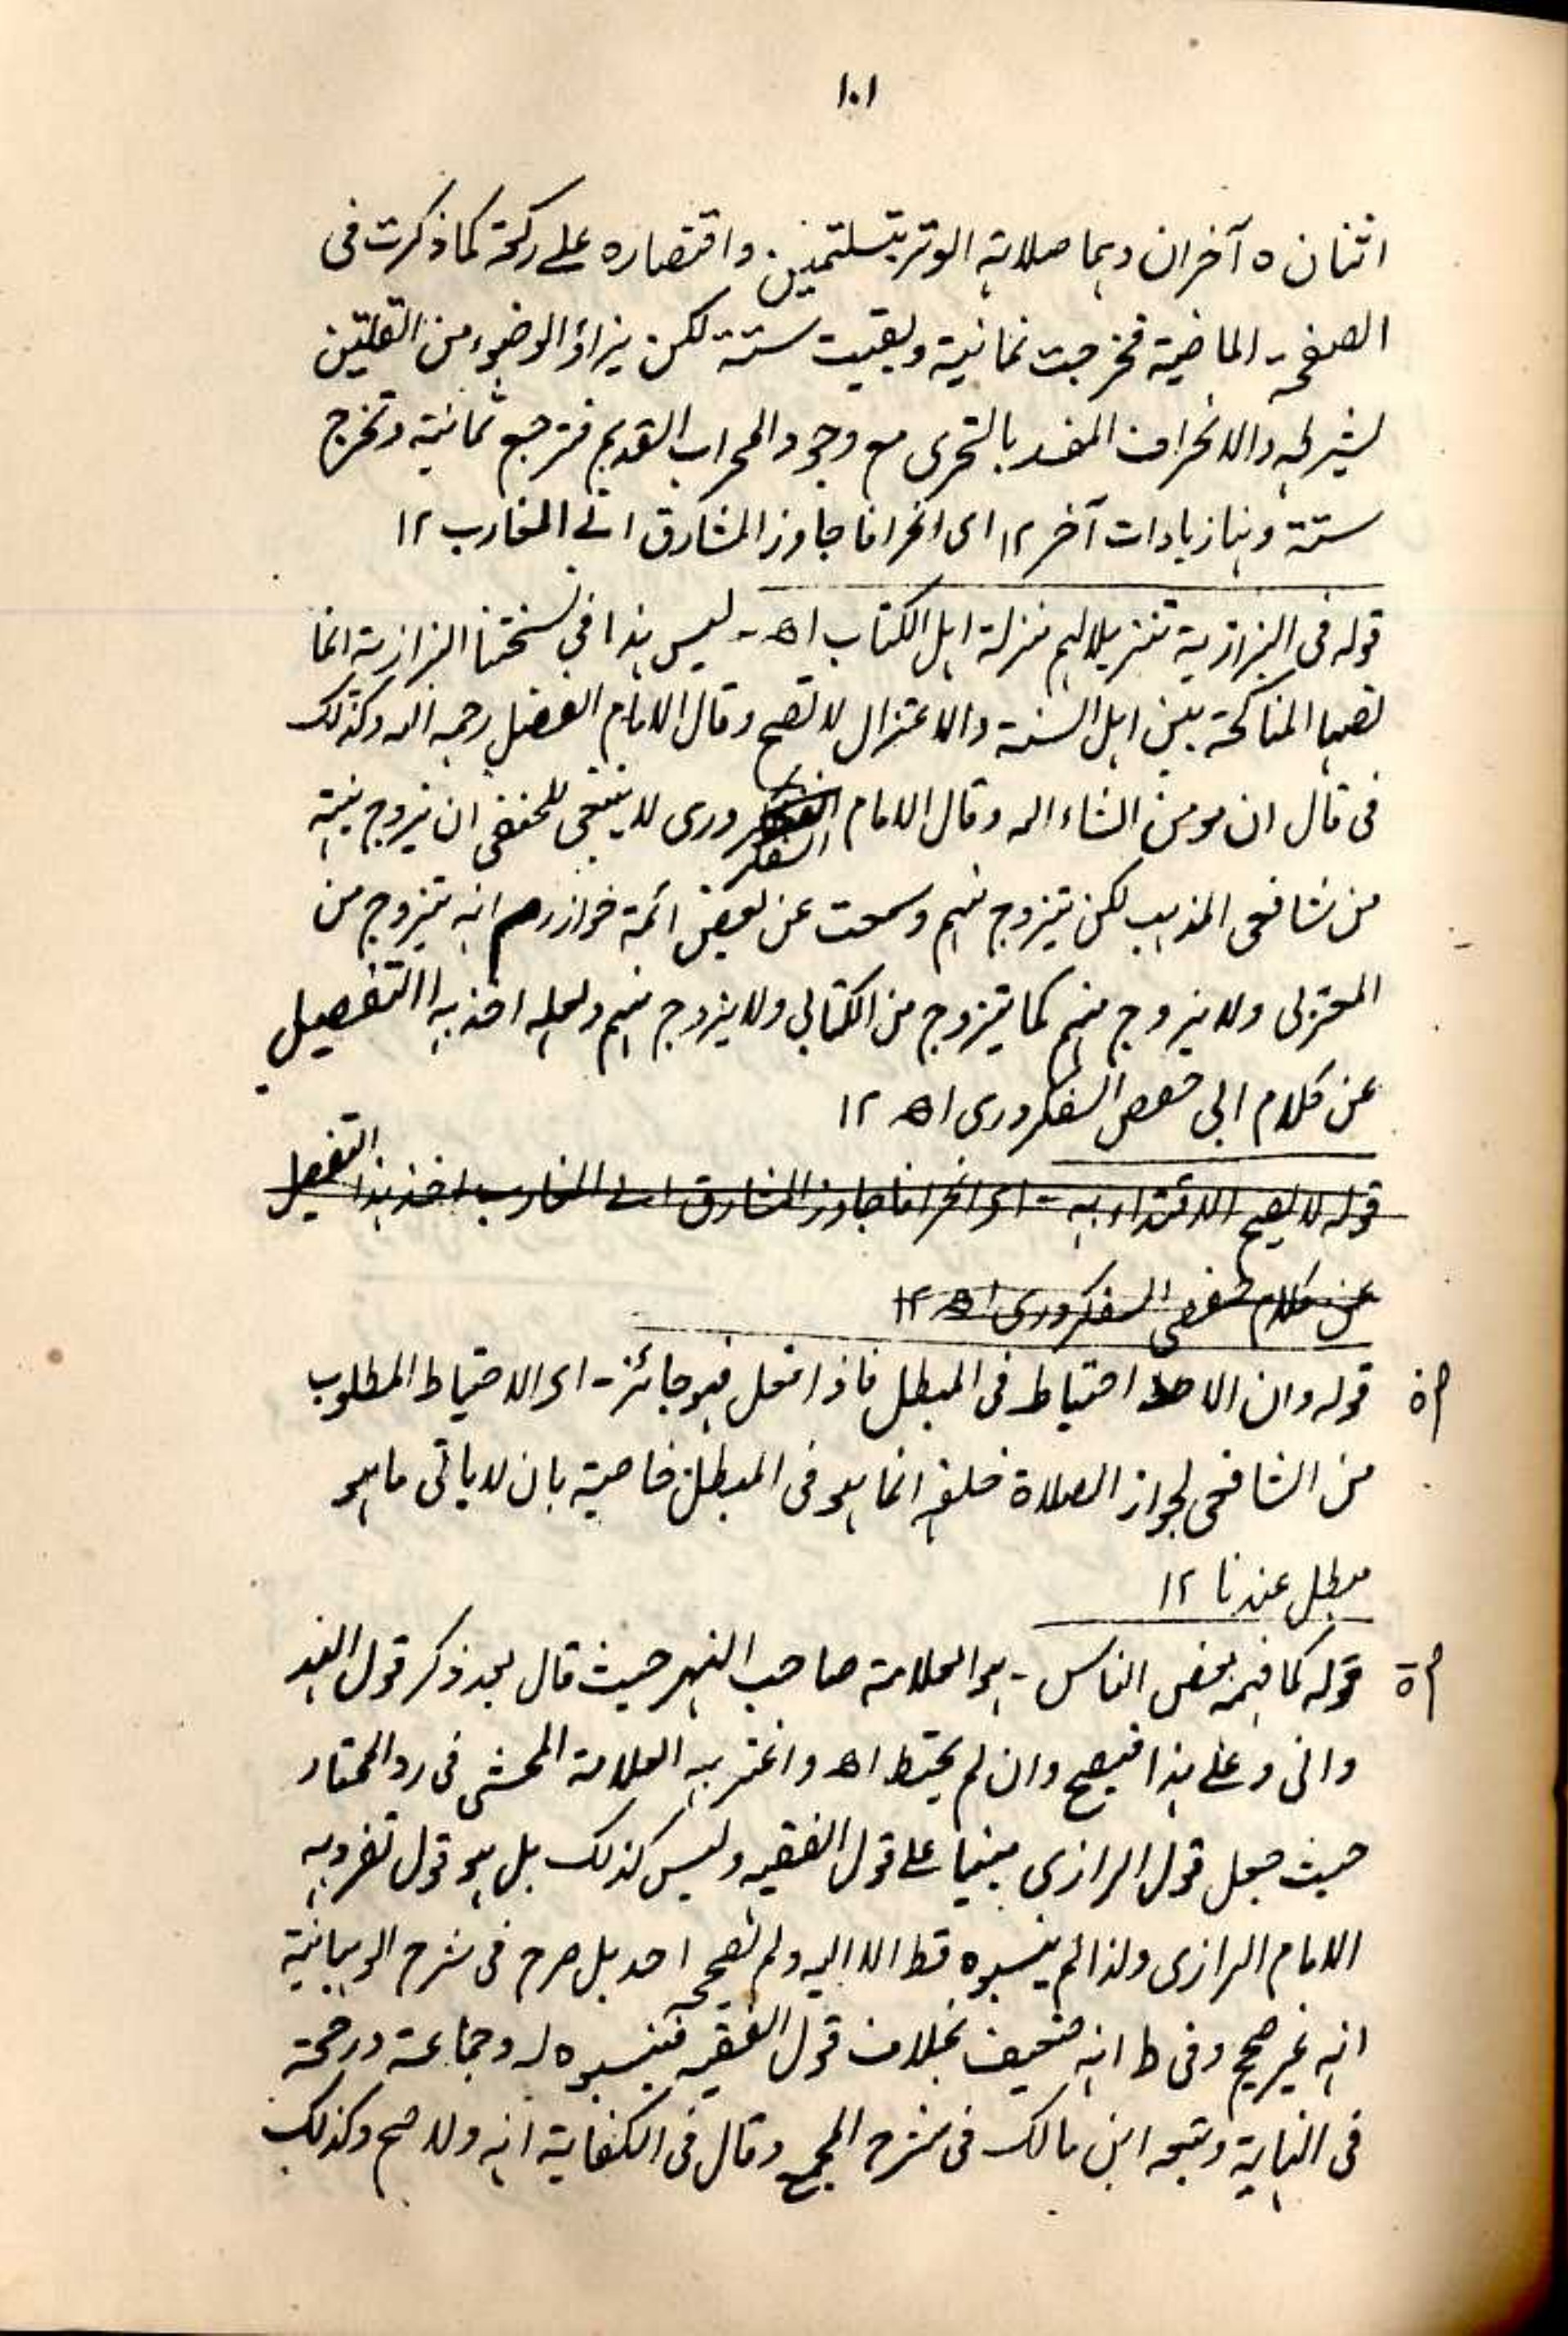 ۱۰۱
اثنان ه آخران وہما صلاتہ الوتر بتسلیمتین۔ واقتصارہ علی رکعۃ کما ذکرت فی
الصفحۃ الماضیۃ فخرجت ثمانیۃ وبقیت ستۃ لکن یزاد الوضوء من القلتین
بشرطہ والانحراف المفسد بالتحری مع وجود المحراب القدیم فترجع ثمانیۃ وتخرج
ستۃ وہنا زیادات آخر ۱۲ ای انحرافا جاوز المشارق الی المغارب ۱۲
قولہ فی البزازیۃ تنزیلا لہم منزلۃ اہل الکتاب اھ۔ لیس ہذا فی نسختنا البزازیۃ انما
نصہا المناکحۃ بین اہل السنۃ والاعتزال لا تصح وقال الامام الفضل رحمہ اللہ وکذلک
فی قال ان مومن انشاء اللہ وقال الامام السفکروری لا ینبغی للحنفی ان یزوج بنتہ
من شافعی المذہب لکن یتزوج منہم وسمعت عن بعض ائمۃ خوارزم انہ یتزوج من
المعتزلی ولا یزوج منہم کما یتزوج من الکتابی ولا یزوج منہم ولعلہ اخذ ہذا التفصیل
عن کلام ابی حفص السفکروری اھ ۱۲
قولہ لا یصح الاقتداء بہ - ای انحرافا جاوز المشارق الی المغارب اخذ ہذا التفصیل
عن کلام حفص السفکروری اھ ۱۲
قولہ وان الاحتیاط فی المبطل فاذا فعل فہو جائز - ای الاحتیاط المطلوب
من الشافعی لجواز الصلاۃ خلفہ انما ہو فی المبطل خاصۃ بان لا یاتی ما ہو
مبطل عندنا ۱۲
قولہ کما فہمہ بعض الناس - ہو العلامۃ صاحب النہر حیث قال بعد ذکر قول الہند
وانی وعلی ہذا فیصح وان لم یحتط اھ واغتر بہ العلامۃ المحشی فی رد المحتار
حیث جعل قول الرازی مبنیا علی قول الفقیہ ولیس کذلک بل ہو قول تفرد بہ
الامام الرازی ولذا لم ینسبوہ قط الا الیہ ولم یصححہ احد بل صرح فی شرح الوہبانیۃ
انہ غیر صحیح وفی ط انہ ضعیف بخلاف قول الفقیہ فینسبوہ لہ وجماعۃ ورجحہ
فی النہایۃ وتبعہ ابن مالک فی شرح المجمع وقال فی الکفایۃ انہ ولاصح وکذلک